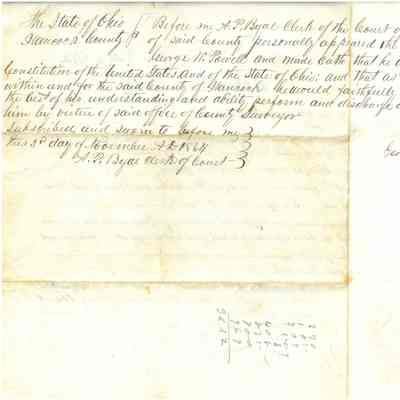 The State of Ohio } Before me A. P. Byal Clerk of the Court of
Hancock County } of said County personally appeared the
George W. Powell and made Oath that he
Constitution of the United States and of the State of Ohio; and that as
within and for the said County of Hancock he would faithfully
the best of his understanding and ability perform and discharge
him by virtue of said office of County Surveyor
Subscribed and sworn to before me
this 3d day of November A D 1864
A. P. Byal Clerk of Court
Geo